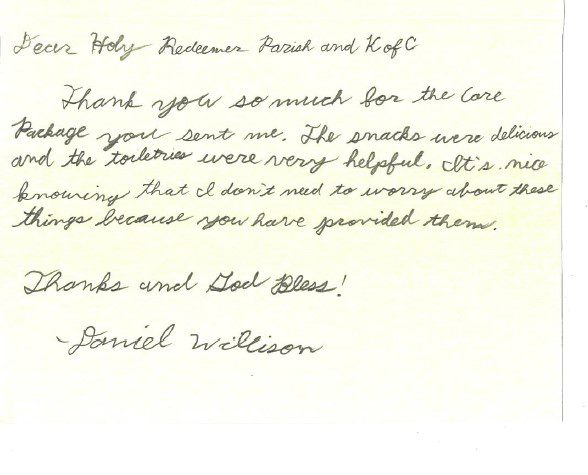 Dear Holy Redeemer Parish and K of C
Thank you so much for the Care
Package you sent me. The snacks were delicious
and the toiletries were very helpful. It's nice
knowing that I don't need to worry about these
things because you have provided them.
Thanks and God Bless!
-Daniel Willison